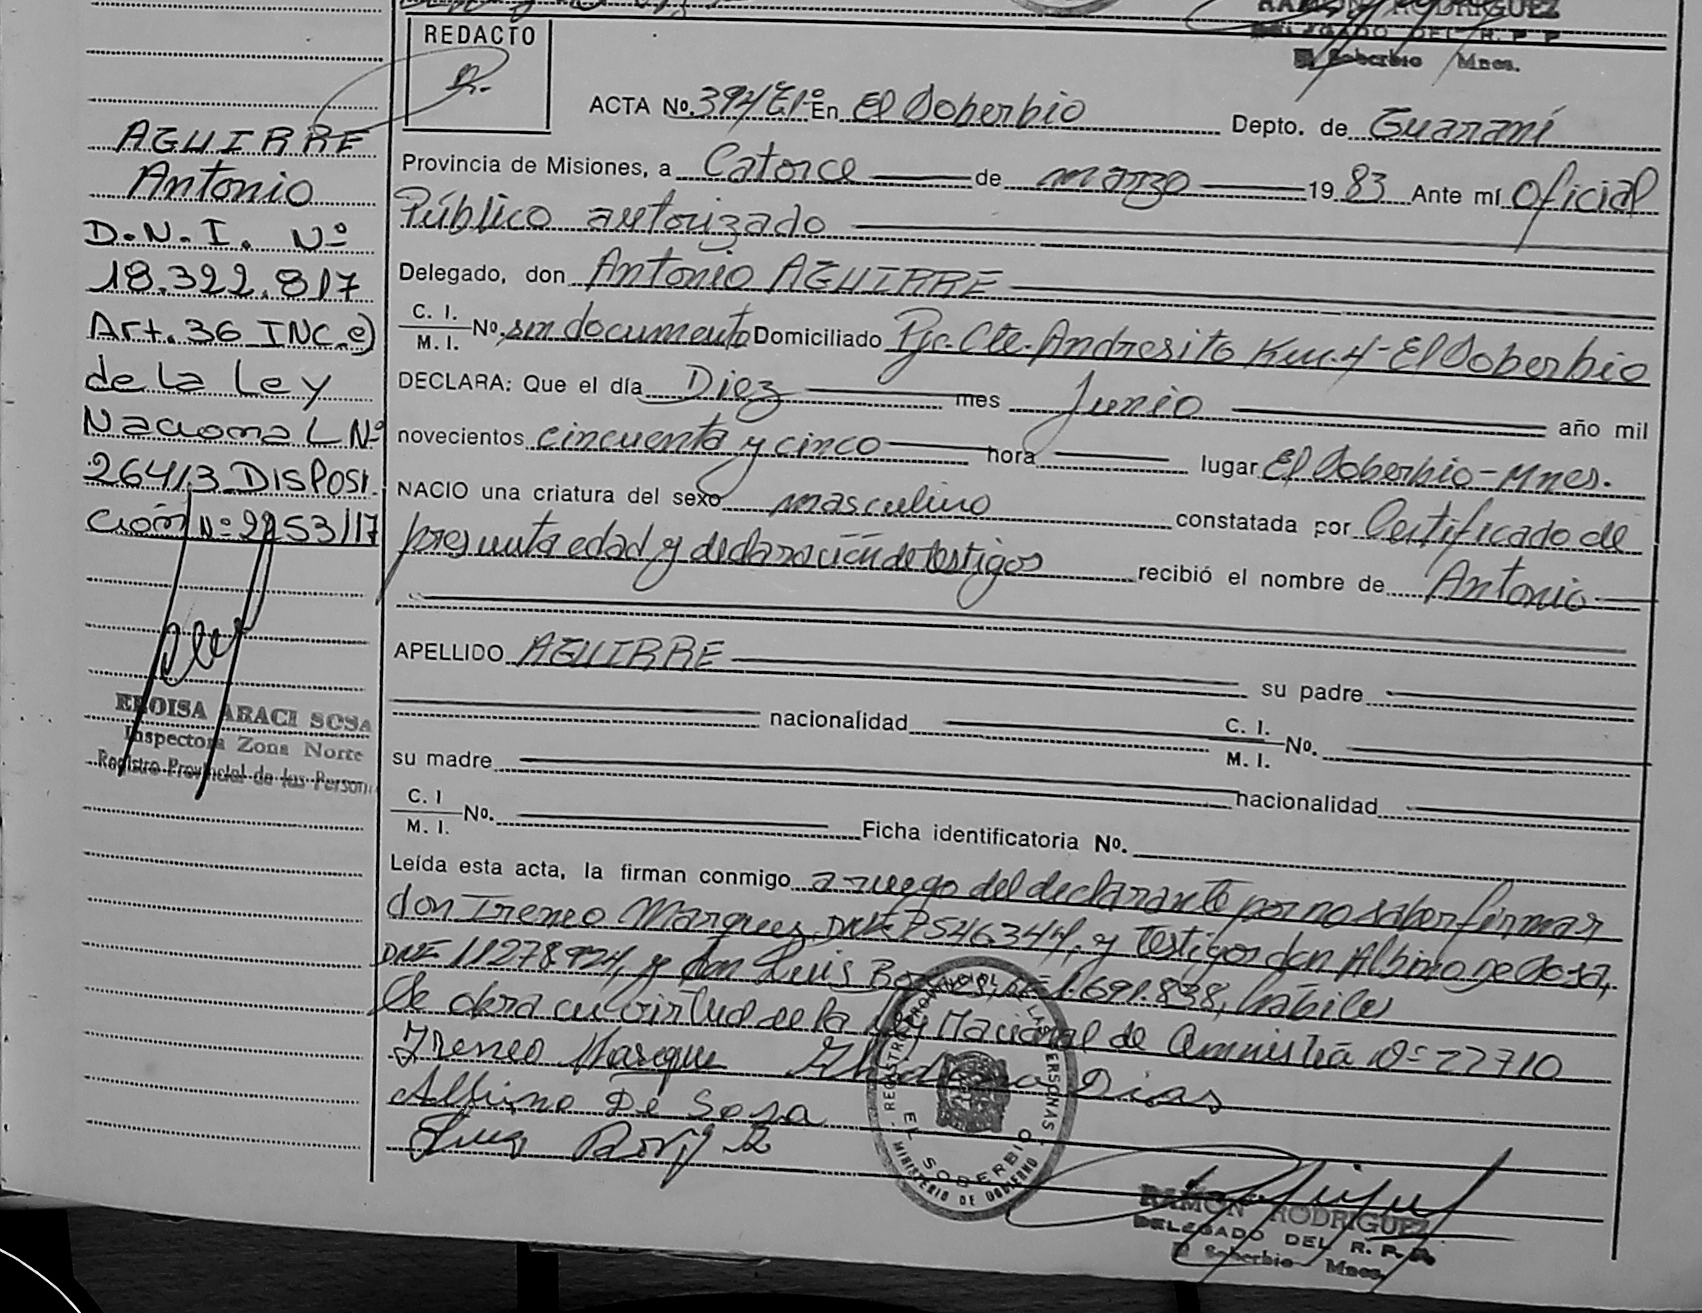 RAMON RODRIGUEZ
DELEGADO DEL R. P. P.
El Soberbio Mnes.
REDACTO
AGUIRRE
Antonio
D.N.I. Nº
18.322.817
Art. 36 INC. e)
de la Ley
Nacional Nº
26413 DISPOSI
ción Nº 2253/17
ELOISA ARACI SOSA
Inspectora Zona Norte
Registro Provincial de las Person
ACTA Nº. 394 En El Soberbio Depto. de Guaraní
Provincia de Misiones, a Catorce de marzo 19 83 Ante mí Oficial
Público autorizado
Delegado, don Antonio AGUIRRE
C. I.
M. I. Nº. sin documento Domiciliado Pje. Cte. Andresito Km. 4 - El Soberbio
DECLARA: Que el día Diez mes Junio año mil
novecientos cincuenta y cinco hora lugar El Soberbio - Mnes.
NACIO una criatura del sexo masculino constatada por Certificado de
presunta edad y declaración de testigos recibió el nombre de Antonio
APELLIDO AGUIRRE su padre
nacionalidad C. I.
M. I. Nº.
su madre nacionalidad
C. I
M. I. Nº. Ficha identificatoria Nº.
Leída esta acta, la firman conmigo a ruego del declarante por no saber firmar
don Ireneo Marques, 7546344, y testigos don Albino De Sosa,
DNI 11278924, y don Luis 1.691.838, hábiles
Se obra en virtud de la Ley Nacional de Amnistia Nº 22710
Ireneo Marque Dias
Albino De Sosa
REGISTRO PROVINCIAL DE LAS PERSONAS
EL SOBERBIO
MINISTERIO DE GOBIERNO
RAMON RODRIGUEZ
DELEGADO DEL R. P. P.
El Soberbio Mnes.